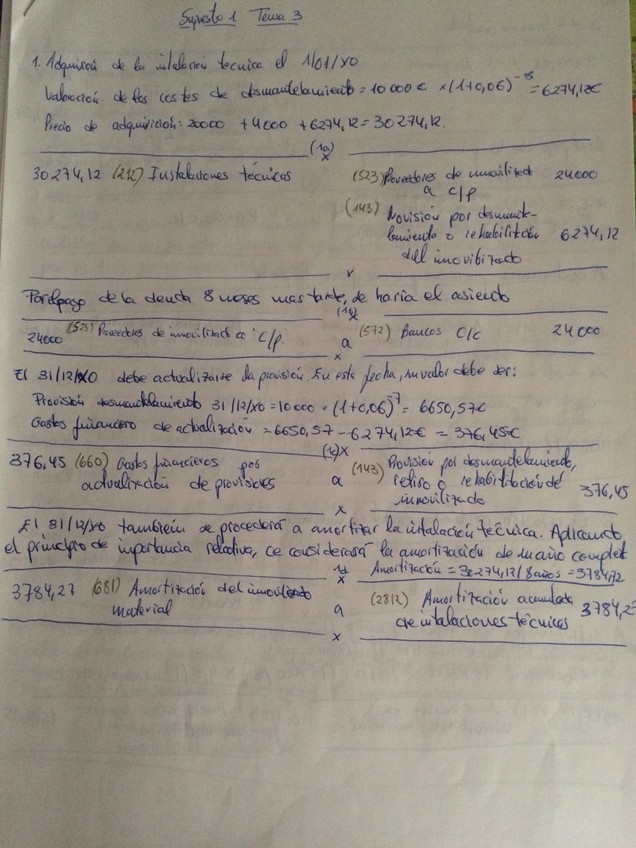 Supuesto 1 Tema 3
1. Adquisición de la instalación técnica el 1/01/x0
Valoración de los costes de desmantelamiento = 10 000€ × (1+0,06)⁻⁸ = 6274,12€
Precio de adquisición = 20000 + 4000 + 6274,12 = 30274,12.
(1a)
x
30274,12 (212) Instalaciones técnicas
(523) Proveedores de inmovilizad 24000
a c/p
(143) Provisión por desmante-
lamiento o rehabilitación 6274,12
del inmovilizado
x
Por el pago de la deuda 8 meses mas tarde, se haría el asiento
(1b)
x
24000 (523) Proveedores de inmovilizad a c/p. a (572) Bancos c/c 24000
x
El 31/12/x0 debe actualizarse la provisión. En esta fecha, su valor debe ser:
Provisión desmantelamiento 31/12/x0 = 10000 · (1+0,06)⁻⁷ = 6650,57€
Gastos financiero de actualización = 6650,57 - 6274,12€ = 376,45€
(1c) x
376,45 (660) Gastos financieros por
actualización de provisiones
a (143) Provisión por desmantelamiento,
retiro o rehabilitación de
inmovilizado 376,45
x
El 31/12/x0 también se procederá a amortizar la instalación técnica. Aplicando
el principio de importancia relativa, se considerará la amortización de un año complet
Amortización = 30274,12/8años = 3784,72
1d
x
3784,27 (681) Amortización del inmovilizado
material
a (2812) Amortización acumulada
de instalaciones técnicas 3784,27
x